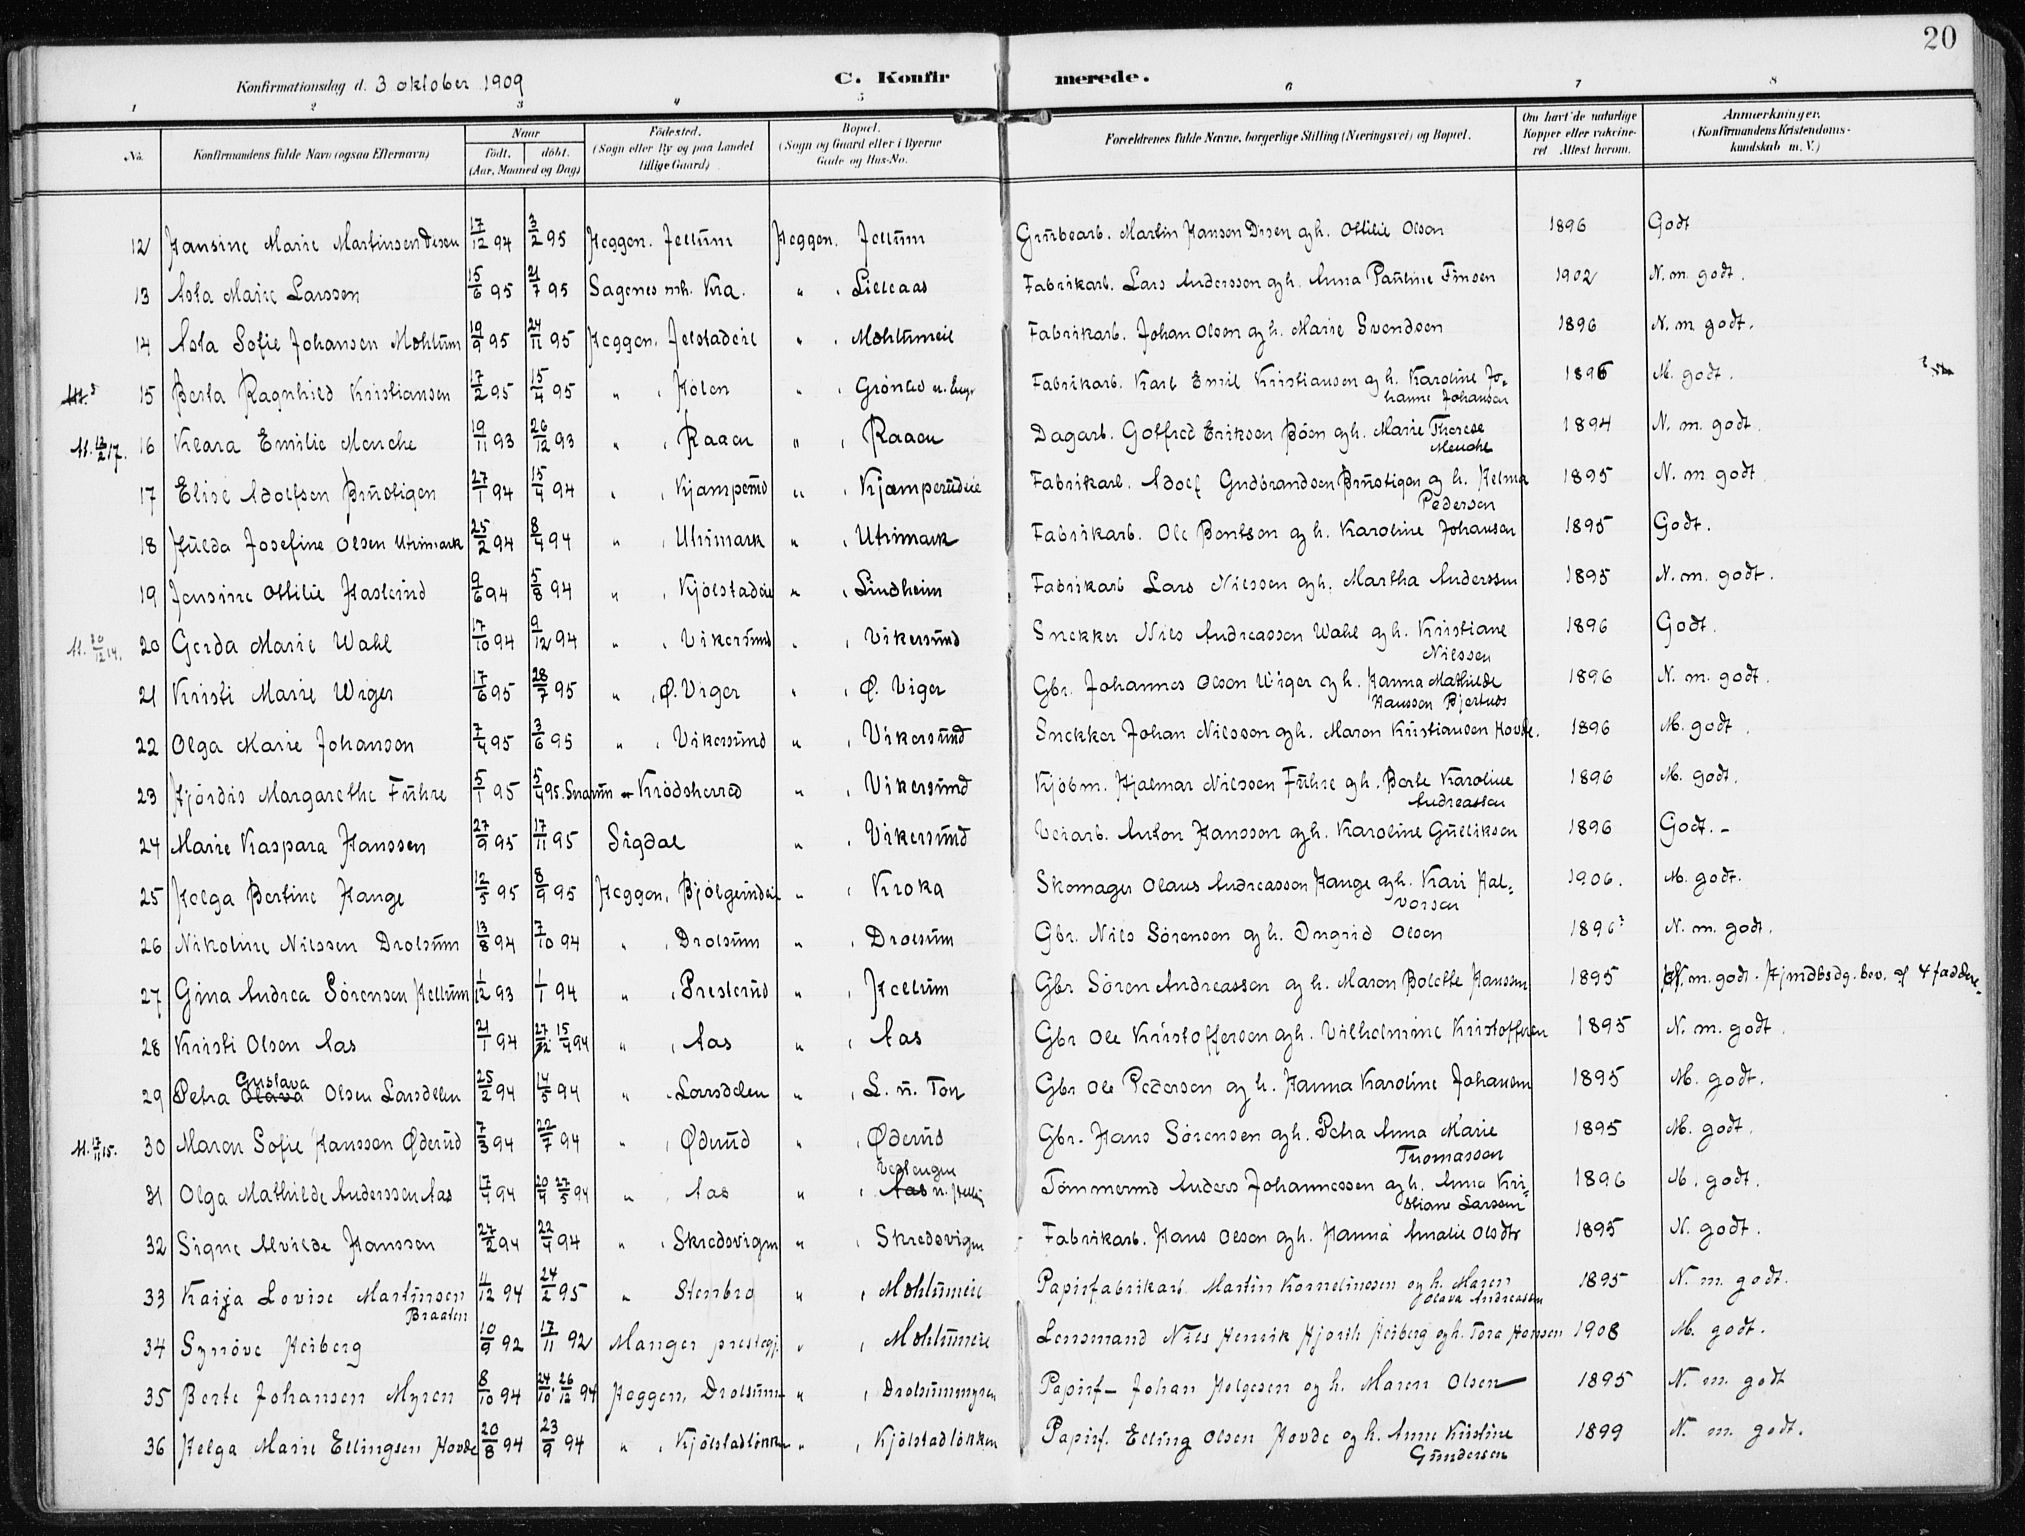 20
Konfirmationsdag d. 3 oktober 1909 C. Konfir merede.
1 2 3 4 5 6 7 8
No. Konfirmandens fulde Navn (ogsaa Efternavn) Naar födt, döbt. (Aar, Maaned og Dag) Födested. (Sogn eller By og paa Landet tillige Gaard) Bopæl. (Sogn og Gaard eller i Byerne Gade og Hus-No. Forældrenes fulde Navne, borgerlige Stilling (Næringsvei) og Bopæl. Om havt de naturlige Kopper eller vakcineret Attest herom. Anmærkninger. (Konfirmandens Kristendomskundskab m. V.)
12 Hansine Marie Martinsen Disen 17/12 94 3/2 95 Heggen. Jellum Heggen. Jellum Grubearb. Martin Hansen Disen og h. Ottilie Olsen 1896 Godt
13 Asta Marie Larssen 15/6 95 21/7 95 Sagenes mh. Kra. " . Lilleaas Fabrikarb. Lars Anderssen og h. Anna Pauline Finsen 1902 N. m. godt.
14 Asta Sofie Johansen Mohlum 19/9 95 24/11 95 Heggen. Jelstadeie " . Mohlumeie Fabrikarb. Johan Olsen og h. Marie Svendsen 1896 N. m godt.
15 Berta Ragnhild Kristiansen 17/2 95 15/4 95 " . Holen " . Grönlid u. Fabrikarb. Karl Emil Kristiansen og h. Karoline Johanne Johansen 1896 M. godt.
M. 12/2 17. 16 Klara Emilie Menche 19/11 93 26/12 93 " . Raaen " . Raaen Dagarb. Gotfred Eriksen Böen og h. Marie Therese Menche 1894 N. m. godt.
17 Elise Adolfsen Brustigen 27/1 94 15/4 94 " . Kjæmperud " . Kjæmperudeie Fabrikarb. Adolf Gudbrandsen Brustigen og h. Helma Pedersen 1895 N. m godt
18 Hulda Josefine Olsen Utrimark 25/2 94 8/4 94 " . Utrimark " . Utrimark Fabrikarb. Ole Berntsen og h. Karoline Johansen 1895 Godt.
19 Jensine Ottilie Haslerud 9/6 94 5/8 94 " . Kjölstadeie " . Lindheim Fabrikarb Lars Nilssen og h. Martha Anderssen 1895 N. m. godt.
M. 20/12 14. 20 Gerda Marie Wahl 17/10 94 9/12 94 " . Vikersund " . Vikersund Snekker Nils Andreassen Wahl og h. Kristiane Nilssen 1896 Godt.
21 Kristi Marie Wiger 17/6 95 28/7 95 " . Ø. Viger " . Ø. Viger Gbr. Johannes Olsen Wiger og h. Hanna Mathilde Hanssen Bjertnes 1896 N. m. godt.
22 Olga Marie Johansen 7/4 95 3/6 95 " . Vikersund " . Vikersund Snekker Johan Nilssen og h. Maren Kristiansen Hovde. 1896 M. godt.
23 Hjördis Margarethe Fuhre 5/1 95 5/4 95. Snarum Krödsherred " . Vikersund Kjöbm. Hjalmar Nilssen Fuhre og h. Berte Karoline Andreassen 1896 M. godt.
24 Marie Kaspara Hanssen 27/9 95 17/11 95 Sigdal " . Vikersund Veiarb. Anton Hanssen og h. Karoline Gulliksen 1896 Godt. -
25 Helga Bertine Hange 12/5 95 8/9 95 Heggen, Bjölgerudeie " . Kroka Skomager Olaus Andreassen Hange og h. Kari Halvorsen 1906. M. godt.
26 Nikoline Nilssen Drolsum 13/8 94 7/10 94 " . Drolsum " . Drolsum Gbr. Nils Sörensen og h. Ingrid Olsen 1896? N. m. godt.
27 Gina Andrea Sörensen Hellum 1/12 93 1/1 94 " . Presterud " . Hellum Gbr Sören Andreassen og h. Maren Bolette Hanssen 1895 N. m. godt. Hjmdbsdg. bev. af 4 faddere.
28 Kristi Olsen Aas 21/1 94 15/4 94 " . Aas " . Aas Gbr Ole Kristoffersen og h. Vilhelmine Kristoffersen 1895 N. m. godt.
29 Petra Gustava Olava Olsen Larsdelen 25/2 94 14/5 94 " . Larsdelen " . L. n. Ton Gbr Ole Pedersen og h. Hanna Karoline Johansen 1895 M. godt.
M. 17/11 15. 30 Maren Sofie Hanssen Øderud 7/3 94 22/7 94 " . Øderud " . Øderud Gbr. Hans Sörensen og h. Petra Anna Marie Thomassen 1895 M. godt.
31 Olga Mathilde Anderssen Aas 17/4 94 27/5 94 " . Aas " . Vestengen Aas n. Tömmermd Anders Johannessen og h. Anna Kristiane Larssen 1896 M. godt.
32 Signe Alvilde Hanssen 27/2 94 22/4 94 " . Skredsvigen " . Skredsvigen Fabrikarb. Hans Olsen og h. Hanna Amalie Olsdtr 1895 N. godt.
33 Kaija Lovise Martinsen Braaten 4/12 94 24/2 95 " Stenbro " . Mohlumeie Papirfabrikarb. Martin Korneliussen og h. Maren Olava Andreassen 1895 N. m. godt.
34 Synöve Heiberg 10/9 92 17/11 92 Manger prestegj. " . Mohlumeie Lensmand Nils Henrik Hjorth Heiberg og h. Tora Hansen 1908 M. godt.
35 Berte Johansen Myren 8/10 94 26/12 94 Heggen, Drolsum " . Drolsummyren Papirf— Johan Helgesen og h. Maren Olsen 1895 N. m. godt
36 Helga Marie Ellingsen Hovde 20/8 94 23/9 94 " . Kjölstadlökken " . Kjölstadlökken Papirf. Elling Olsen Hovde og h. Anne Kristine Gundersen 1899 N. m. godt.